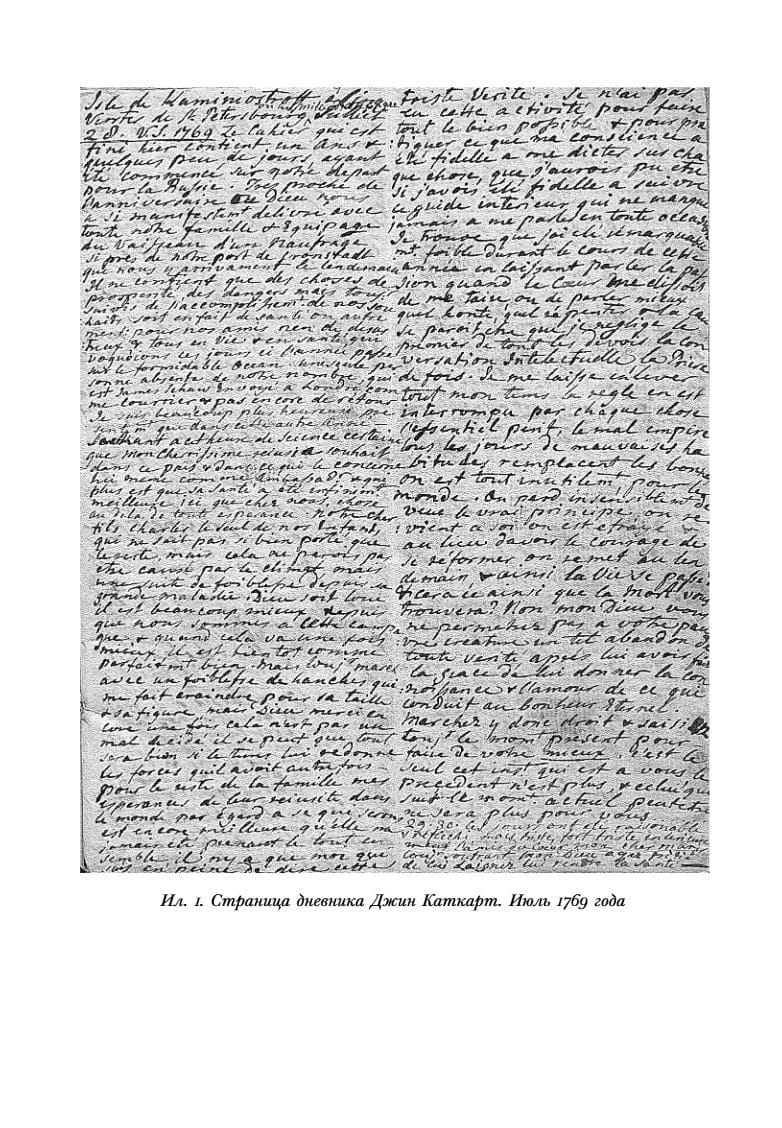 Isle de Kaminiostroff à
Verstes de St Petersbourg Juillet
28. V.S. 1769 Le Cahier qui est
fini hier contient un ans &
quelques peu de jours, ayant
été commencé sur notre depart
pour la Russie. Tres proche de
l'anniversaire ou Dieu nous
a si manifestemt delivré avec
toute notre famille & Equipage
du Vaisseau d'un Naufrage
si près de notre port de Cronstadt
que nous y arrivament le lendemain
Il ne contient que des choses de
prosperité, des dangers mais toujours
suivis de l'accomplissemt de nos sou
haits, soit en fait de santé ou autre
ment, pour nos amis rien de desas
treux & tous en Vie & en santé, qui
voguions ces jours ci l'année passé
sur le formidable Ocean, unescule per
sonne absente de notre nombre, qui
est James Schaw Envoyé a Londre com
me courrier & pas encore de retour
Je suis beaucoup plus heureuse pre
sentemt que dans cette autre Année
Sachant a cet heure de Science certaine
que mon cherissime reussi a souhait
dans ce païs & dans ce qui le concerne
lui meme comme Ambassadr & qui
plus est que sa santé a été infinimt
meilleure ici que chez nous
au dela de toute esperance. Notre cher
fils Charles le seul de nos Enfants,
qui ne soit pas si bien porté que
le reste, mais cela ne parois pas
etre causé par le climat mais
une suite de foiblesse depuis sa
grande maladie. Dieu soit loué
il est beaucoup mieux depuis
que nous sommes a cette campa
gne & quand cela va une fois
mieux il est bientot comme
parfaitmt bien. Mais tousjr marche
avec un foiblesse de hanches qui
me fait craindre pour sa taille
& sa figure, mais Dieu merci en
core une fois cela n'est pas un
mal decidé il se peut que tout
sera bien si le tems lui redonne
les forces qu'il avoit autre fois
pour le reste de la famille mes
esperances de leur reussite dans
le monde par Egard a ce que seron
est encore meilleure qu'elle n'a
jamais été prenant le tout en
semble il n'y a que moi qui
suis en peine de dire cette
triste Verité. Je n'ai pas
eu cette activité pour faire
tout le bien possible & pour pra
tiquer ce que ma conscience a
été fidelle a me dicter sur cha
que chose, que j'aurois pu etre
si j'avois été fidelle a suivre
ce guide interieur qui ne manque
jamais a me parler en toute occasion
Je trouve que j'ai été remarquable
mt foible durant le cours de cette
année en laissant parler la pas
sion quand le Cœur me disoit
de me taire ou de parler mieux
quel honte, quel repentir
Se paroit che que je neglige le
premier de tout les devoirs la con
versation Intelectuelle la Priere
de fois. Je me laisse enlever
tout mon tems la regle en est
interrompu par chaque chose
l'essentiel perit, le mal empire
tous les jours de mauvaises ha
bitudes remplacent les bonnes
on est tout inutilemt pour le
monde. on perd insensiblemt de
veue le vrai principe, on re
vient a soi on est efrayé &
au lieu d'avoir le courage de
se reformer on remet au len
demain, & ainsi la Vie se passe
& cera ce ainsi que la Mort vous
trouvera? Non mon Dieu vous
ne permetrez pas a votre pau
vre creature un tel abandon de
toute verité après lui avoir fait
la grace de lui donner la con
noissance & l'amour de ce qui
conduit au bonheur Eternel
Marchez y donc droit & saisi
le momt present pour
faire de votre mieux. C'est le
seul cet inst qui est a vous le
precedent n'est plus, & celui qui
suit le momt actuel peutetre
ne sera plus pour vous
29. 30. les jours ont été raisonable
de lui daigner lui rendre la santé
Ил. 1. Страница дневника Джин Каткарт. Июль 1769 года